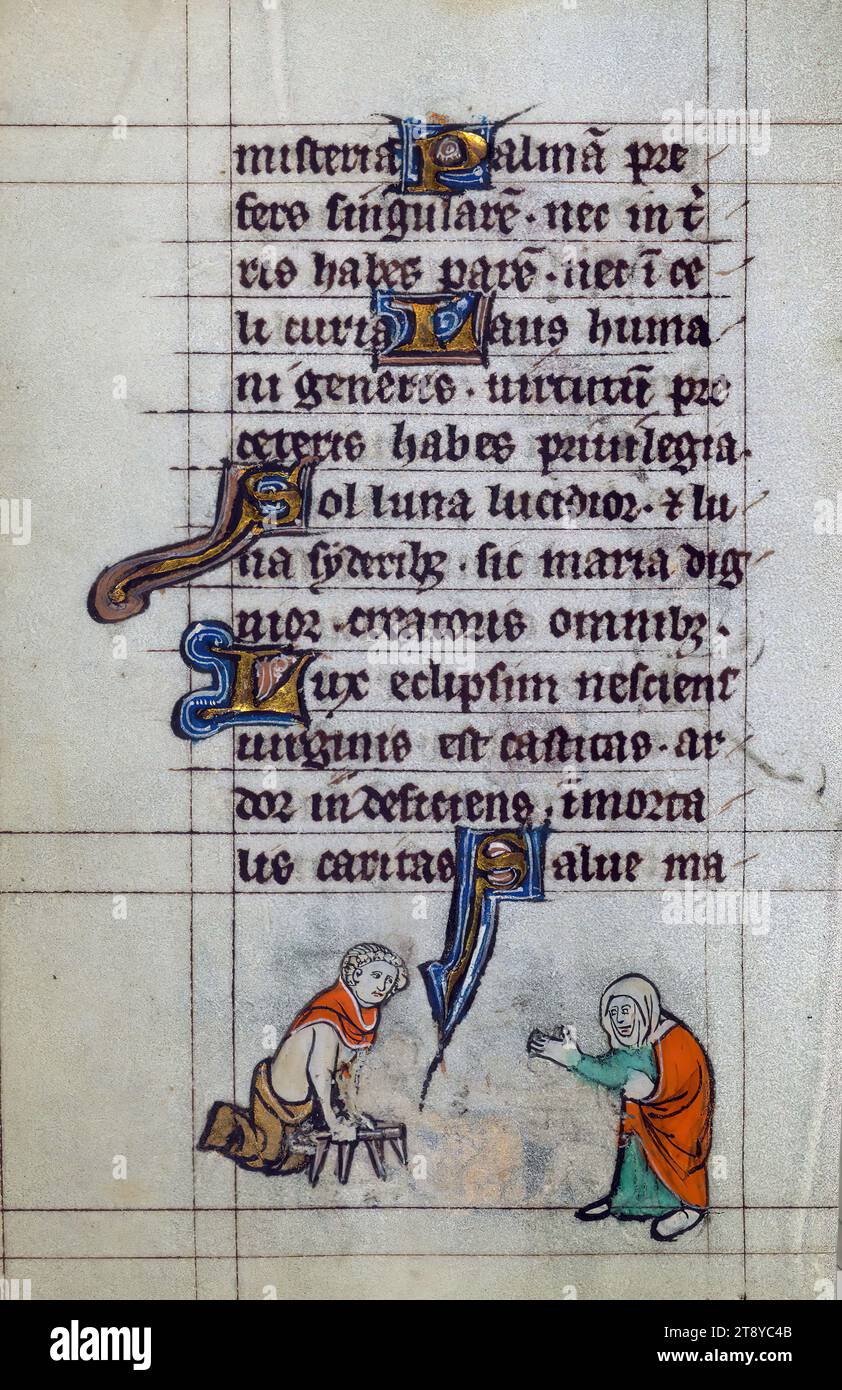 misteria Palmā pre
fers singularē · nec in t̄
ris habes parē · nec ī ce
li curia Laus huma
ni generis · uirtutū pre
ceteris habes priuilegia ·
Sol luna lucidior · ⁊ lu
na syderibꝫ · sic maria dig
nior · creatoris omnibꝫ ·
Lux eclipsim nesciens
uirginis est castitas · ar
dor indeficiens · īmorta
lis caritas Salue ma
alamy
Image ID: 2T8YC4B
www.alamy.com